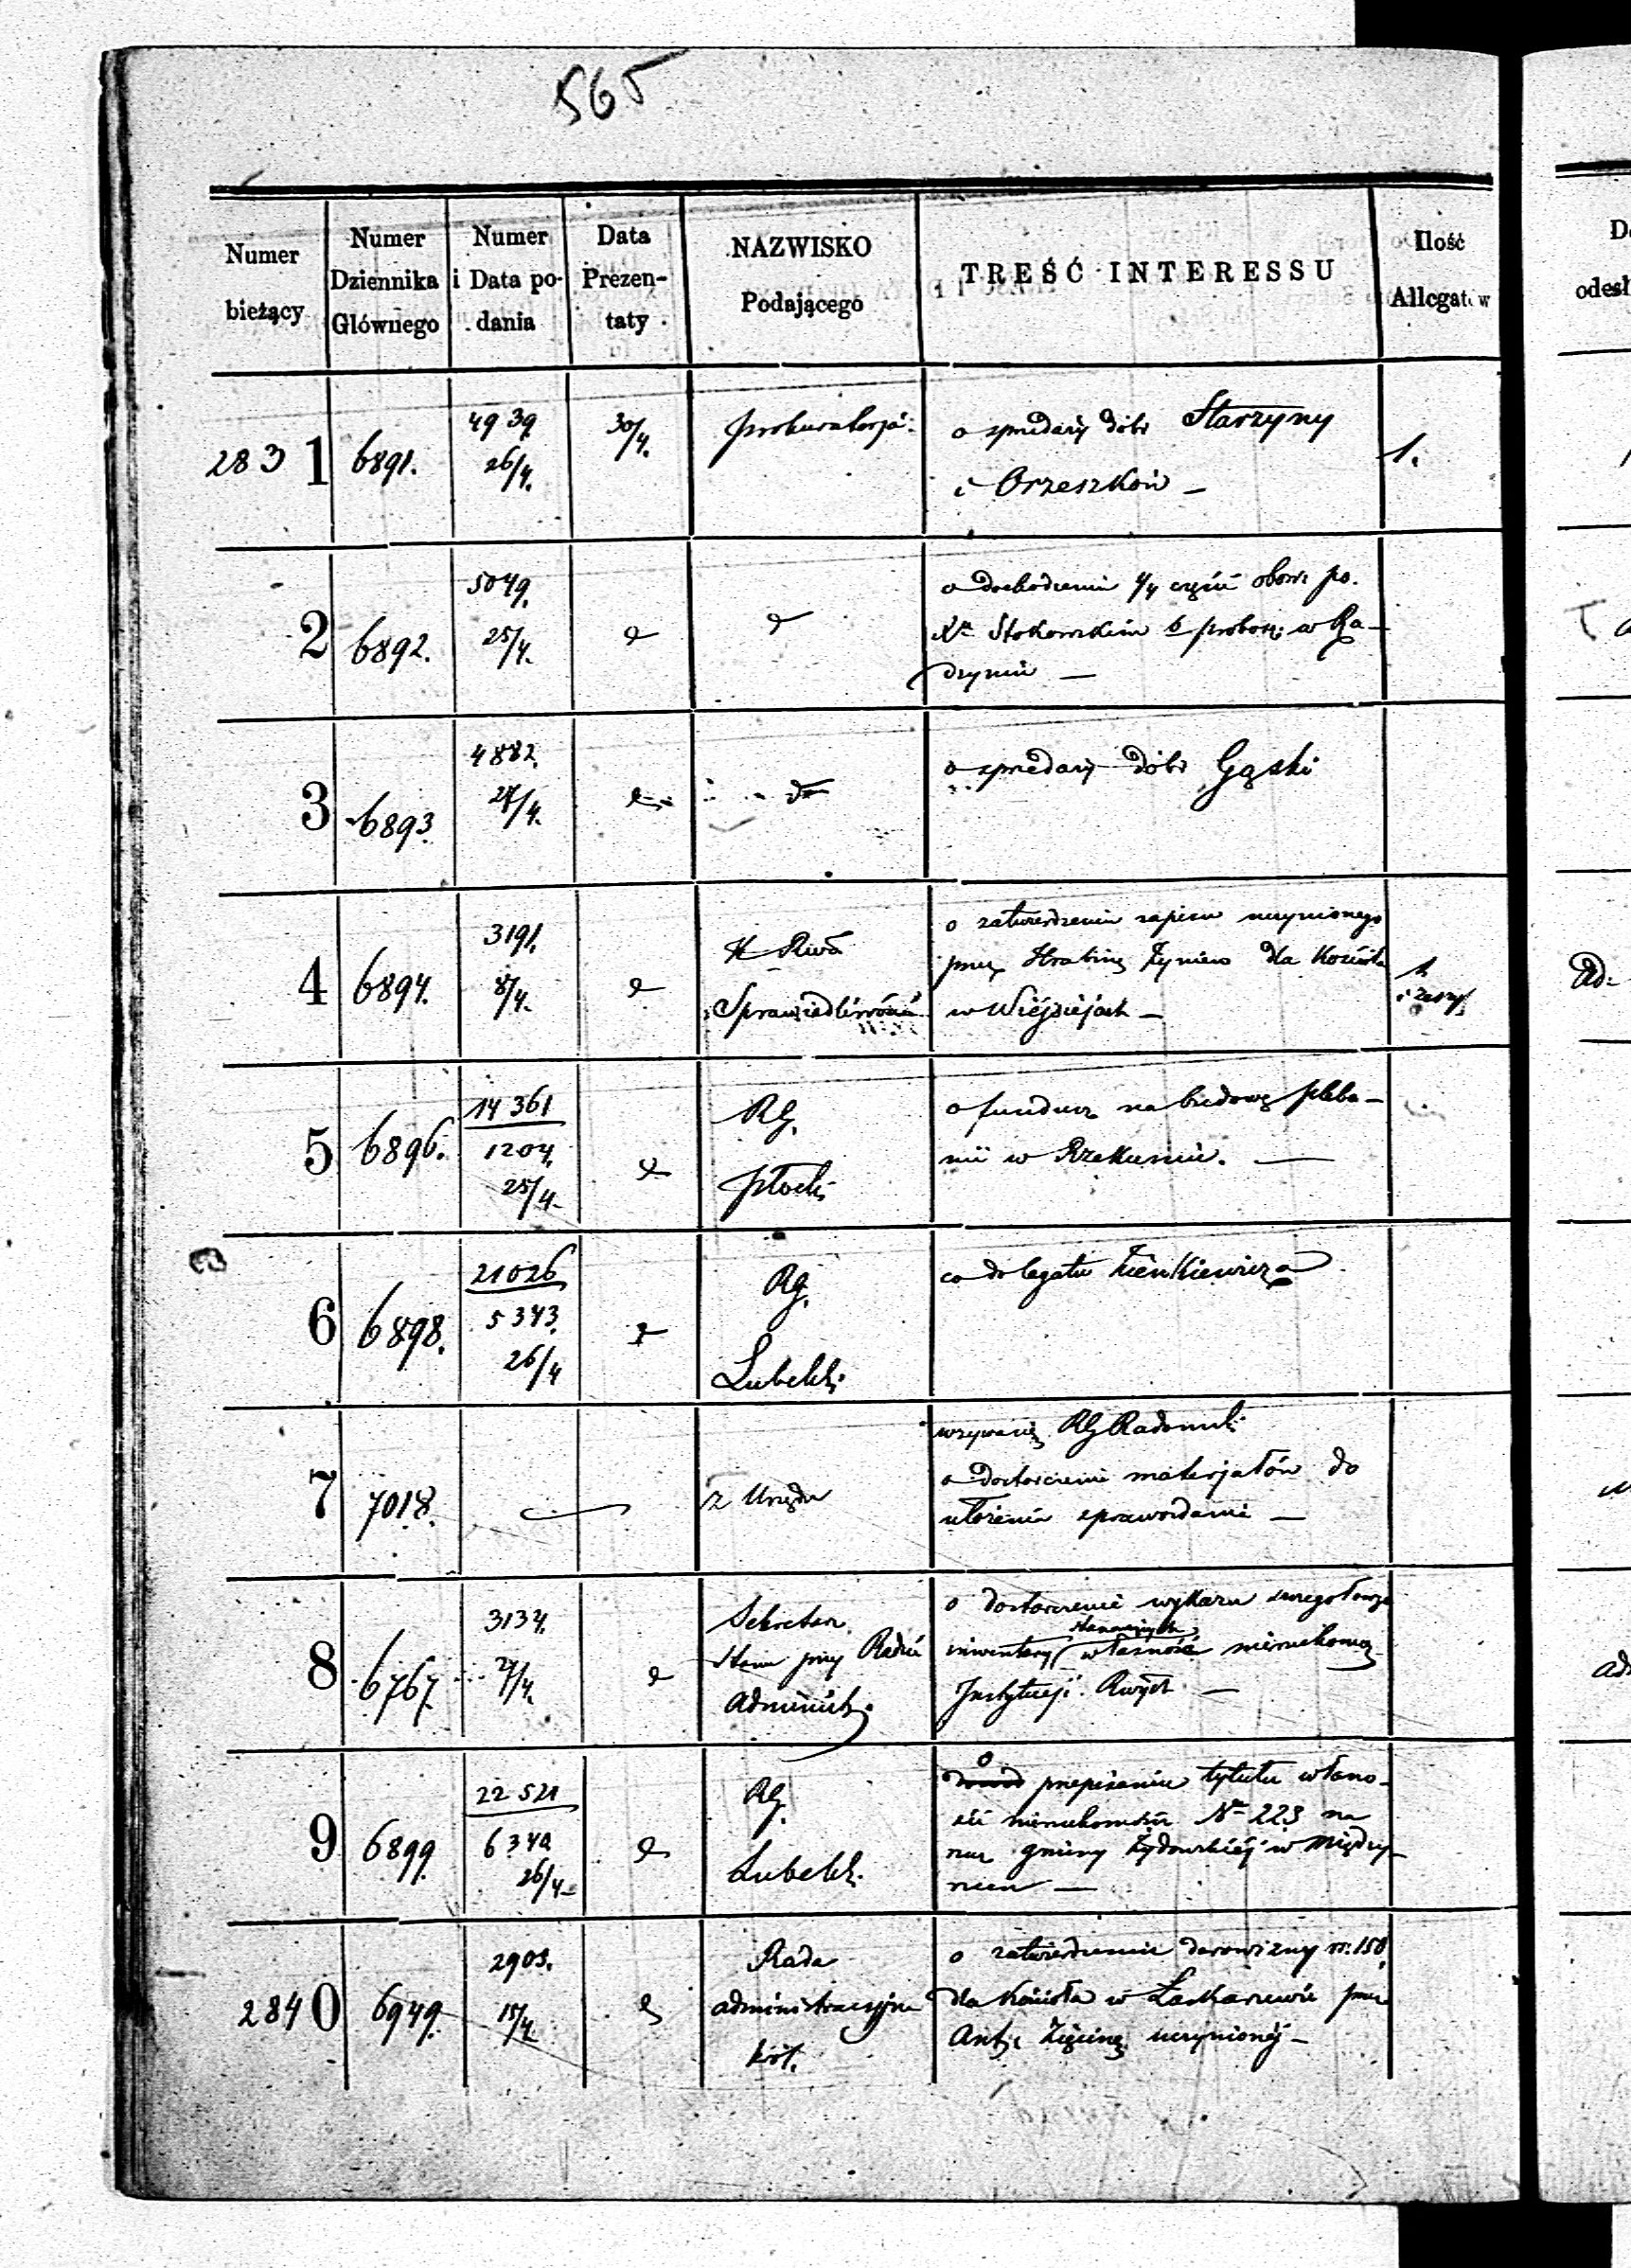 565
Numer bieżący
Numer Dziennika Głównego
Numer i Data podania
Data Prezentaty
NAZWISKO Podającego
TREŚĆ INTERESSU
Ilość Allegatów
2831
6891.
4939.
26/4.
30/4.
Prokuratorja
o sprzedaży dóbr Starzyny
i Orzeszków —
1.
2
6892.
5049.
25/4.
d
d
o dochodzeniu 1/4 części obow: po
Xu Stokowskim b proboszcz: w Ra-
dzyniu —
3
6893.
4882.
4.
d
d
o sprzedaży dóbr Gąski
4
6894.
3191.
8/4.
d
K Rzą
Sprawiedliwości
o zatwierdzeniu zapisu uczynionego
przez Hrabinę dla Kościoła
w Wiejsiejach —
1.
i zeszyt
5
6896.
14361
1204.
25/4.
d
RG.
Płocki
o fundusz na budowę pleba-
nii w Rzekuniu. —
6
6898.
21026
5343.
26/4
d
RG.
Lubelski
co do legatu Zienkiewicza
7
7018.
z Urzędu
wzywanie RG Radomsk:
o dostarczenie materjałów do
ułożenia sprawozdania —
8
6767.
3134.
4.
d
Sekretarz
Stanu przy Radzie
Administ.
o dostarczenie wykazu szczegołowego
inwentarzy własność nieruchomą
Instytucji. Rząd: —
9
6899.
22521
6340
26/4
d
RG.
Lubelsk.
o przepisanie tytułu własno-
ści nieruchomości No 223 na
rzecz gminy Żydowskiéj w Między-
rzecu —
2840
6949.
2903.
15/4
d
Rada
administracyjna
król.
o zatwierdzenie darowizny rs. 150
dla Kościoła w Łaskarzewie przez
Ant: Ziębinę uczynionéj —